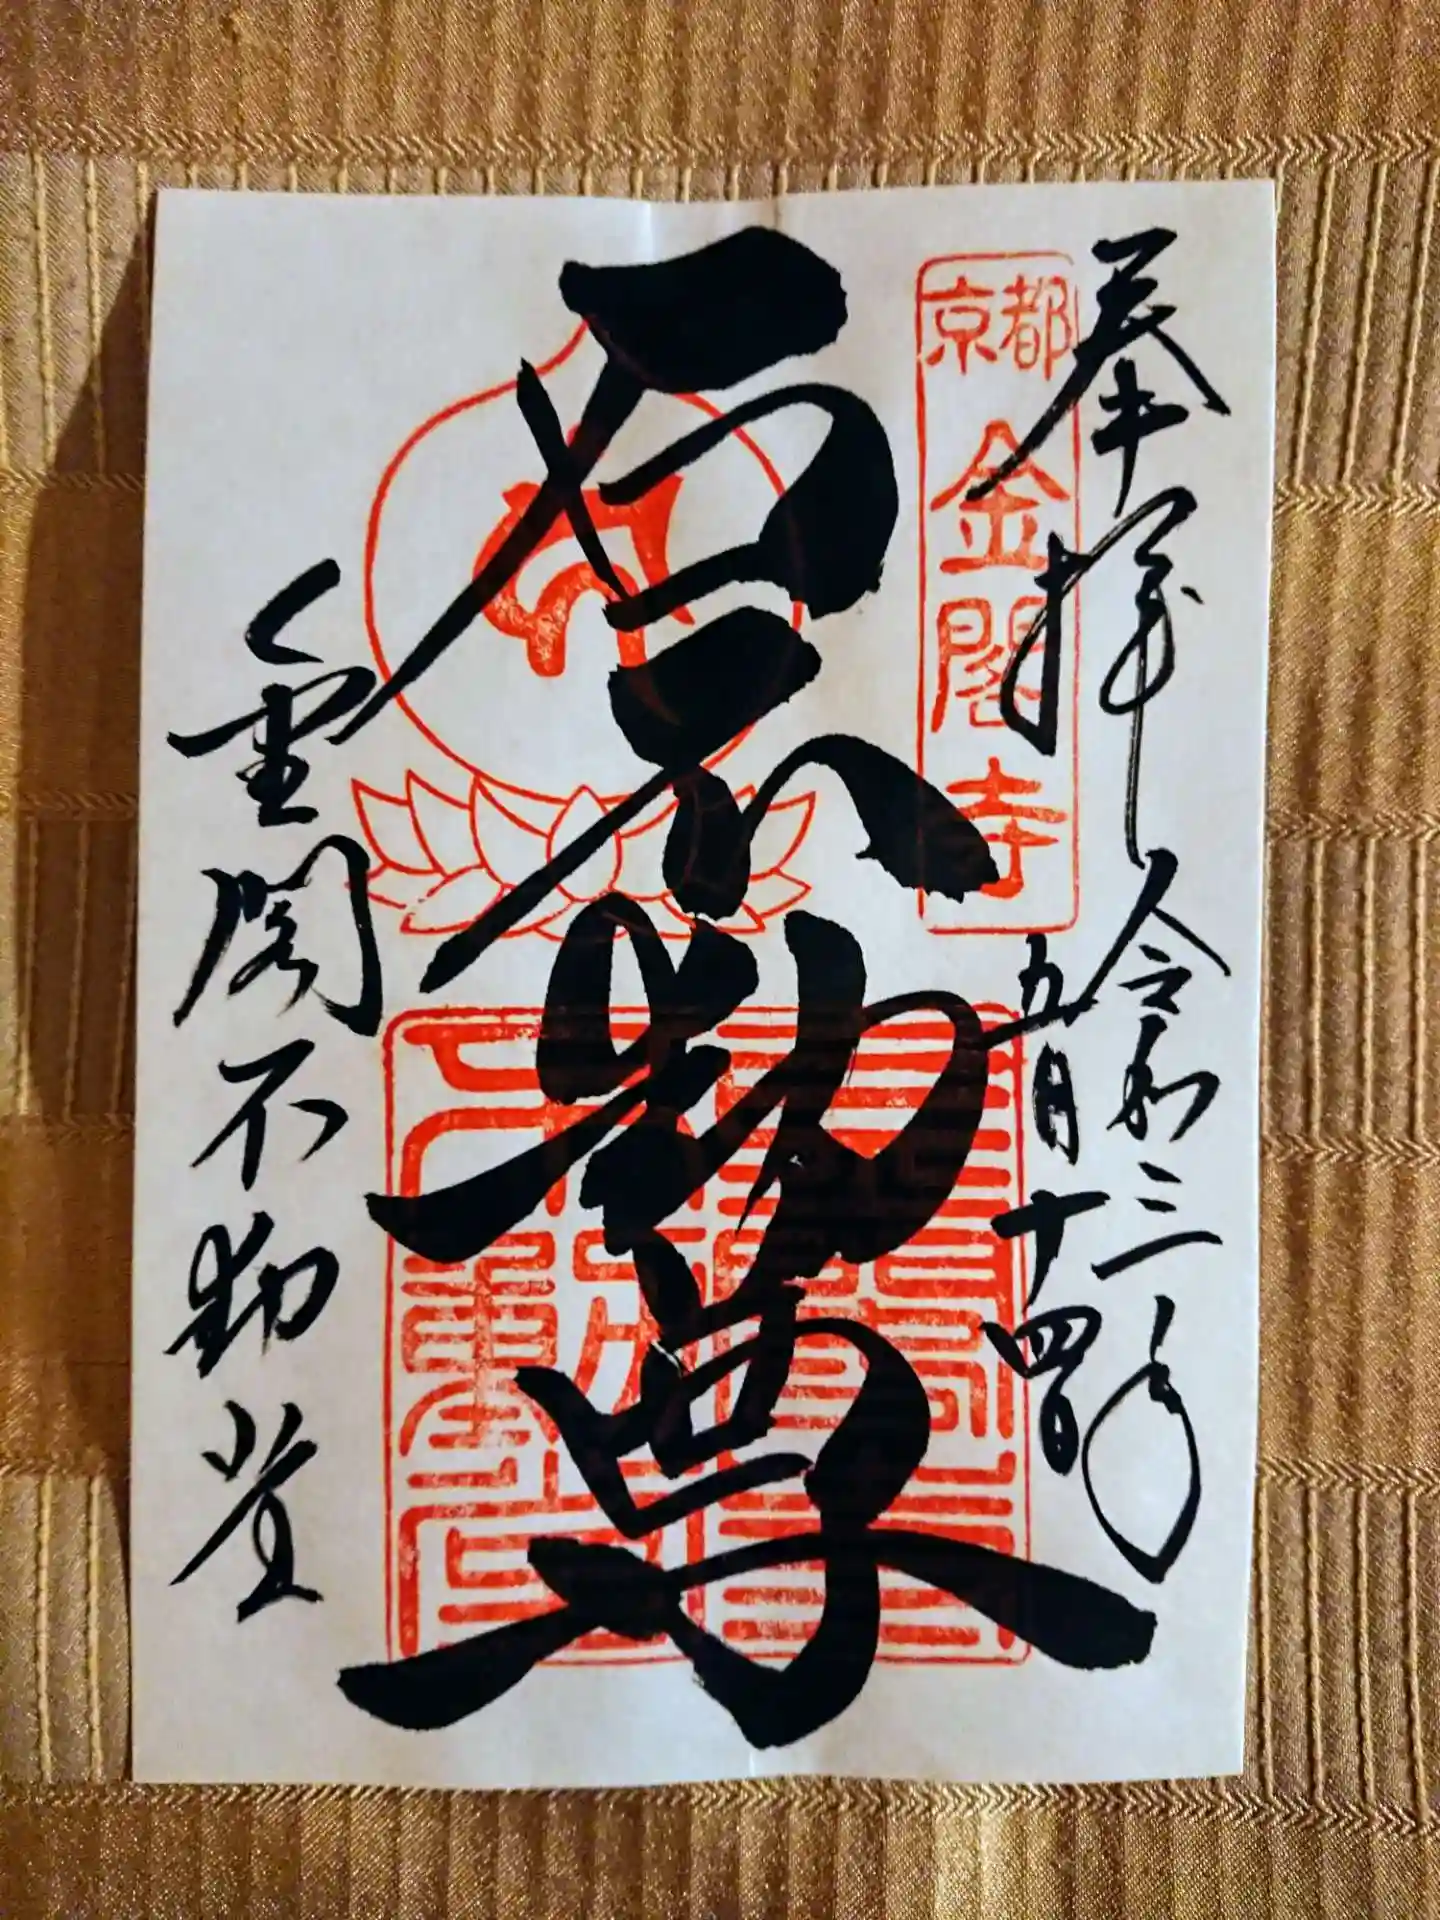 奉拝 令和三年
五月十四日
京都
金閣寺
石不動尊
金閣不動堂